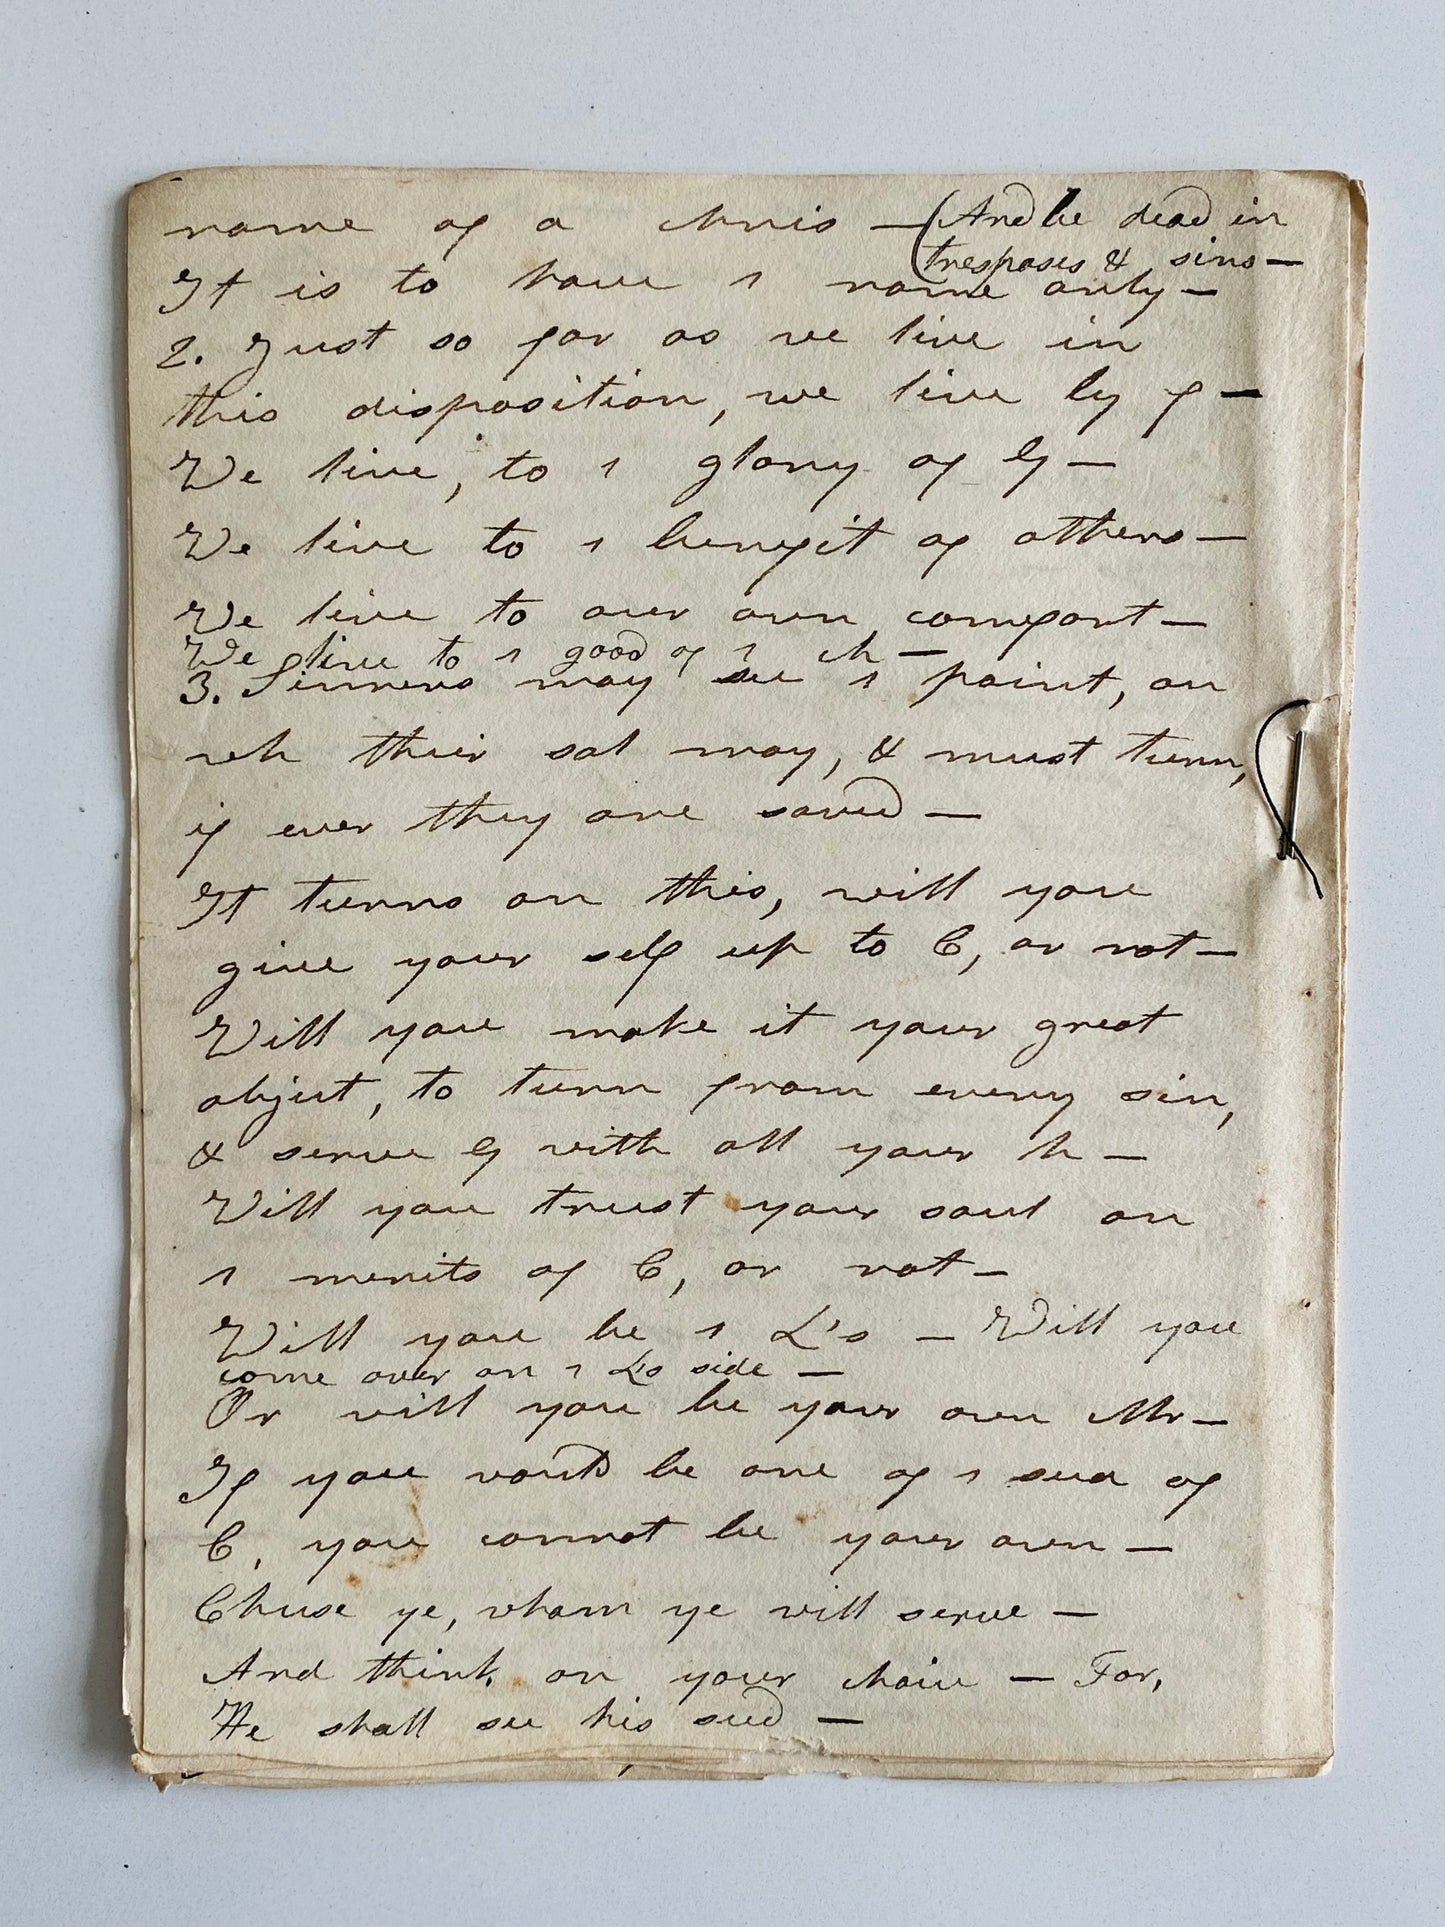 name of a chris — (And be dead in
trespases & sins —
It is to have 1 name only —
2. Just so far as we live in
this disposition, we live by f —
We live, to 1 glory of G —
We live to 1 benefit of others —
We live to our own comfort —
We live to 1 good of 1 ch —
3. Sinners may see 1 point, on
wh their sal may, & must turn,
if ever they are saved —
It turns on this, will you
give your self up to C, or not —
Will you make it your great
object, to turn from every sin,
& serve G with all your h —
Will you trust your soul on
1 merits of C, or not —
Will you be 1 L's — Will you
come over on 1 L's side —
Or will you be your own Mr —
If you would be one of 1 seed of
C, you cannot be your own —
Chuse ye, whom ye will serve —
And think on your choice — For,
He shall see his seed —